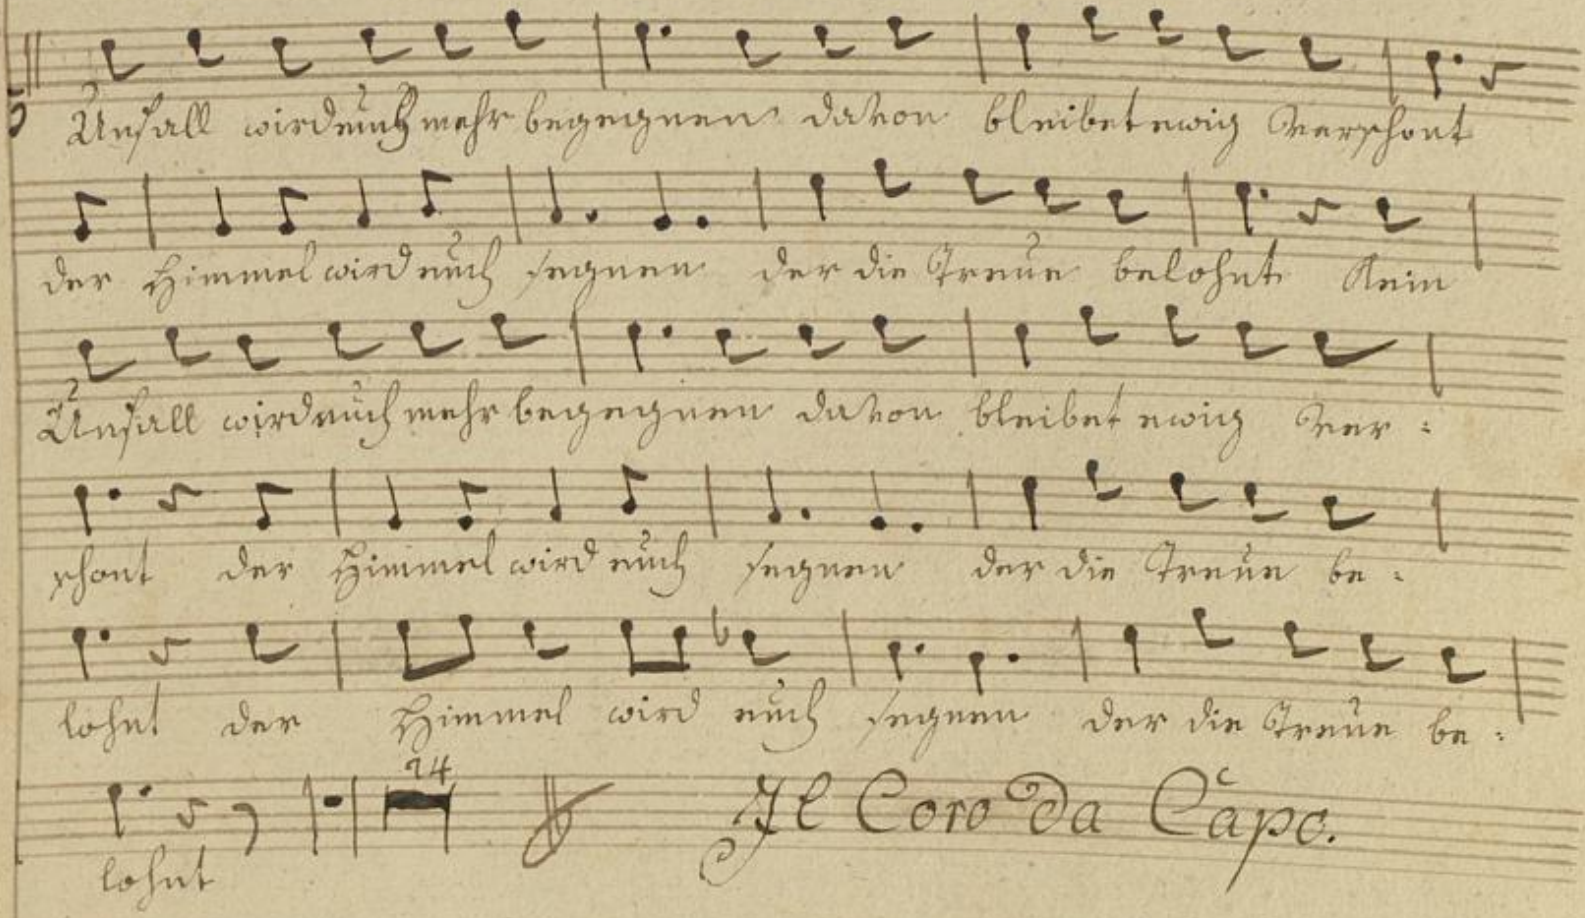 Unfall wird euch mehr begegnen davon bleibet ewig verschont
der Himmel wird euch segnen der die Treue belohnt Kein
Unfall wird euch mehr begegnen davon bleibet ewig ver:
schont der Himmel wird euch segnen der die Treue be:
lohnt der Himmel wird euch segnen der die Treue be:
14
Il Coro Da Capo.
lohnt